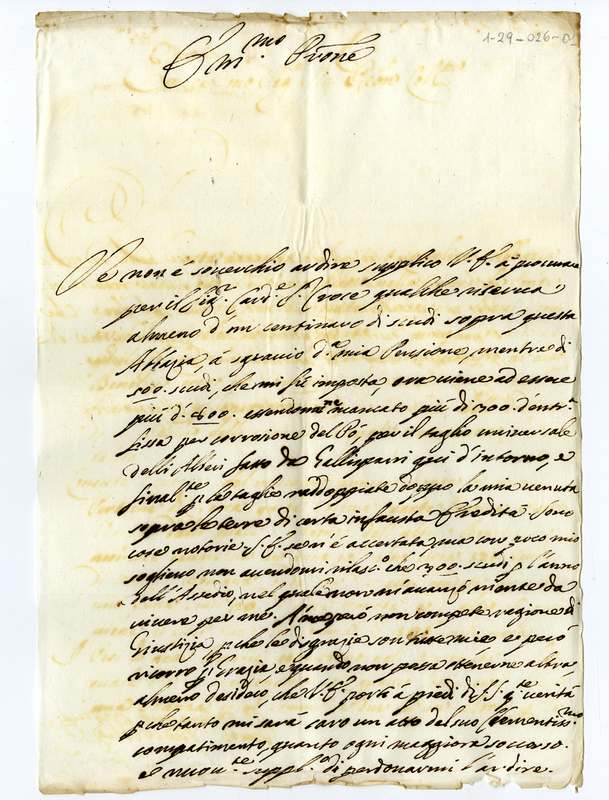 1-29-026-01
Em.mo P̃rone
Se non é souerchio ardire supplico V. E. á procurare
per il Sig.r Card.e S. Croce qualche riserua
almeno d'un centinaro di scudi sopra questa
Abbazia á sgrauio d.a mia Pensione, mentre di
500. scudi, che mi fù imposta, ora uiene ad essere
più d. 800. essendomene mancato più di 300. d'entr.a
fissa per corrosione del Pò, per il taglio uniuersale
delli Alberi fatto da Gallispani qui d'intorno, e
final.te p. le taglie raddoppiate doppo la mia uenuta
sopra le terre di certa infausta Eredità. Sono
cose notorie. S. E. se n'é accertata, ma con poco mio
sollieuo non auendomi rilasc.o che 300. scudi p. l'anno
dell'Assedio, nel quale non mi auanzó niente da
uiuere per me. A me peró non compete ragione di
Giustizia, p. che le disgrazie son tutte mie e peró
ricorro p. Grazia, e quando non possa ottenerne altra,
almeno desidero, che V. E. porti á piedi di S. S. q.te uerità
p. che tanto mi sará caro un atto del suo Clementiss.mo
compatimento, quanto ogni maggiore soccorso.
e nuou.te suppl.o di perdonarmi l'ardire.